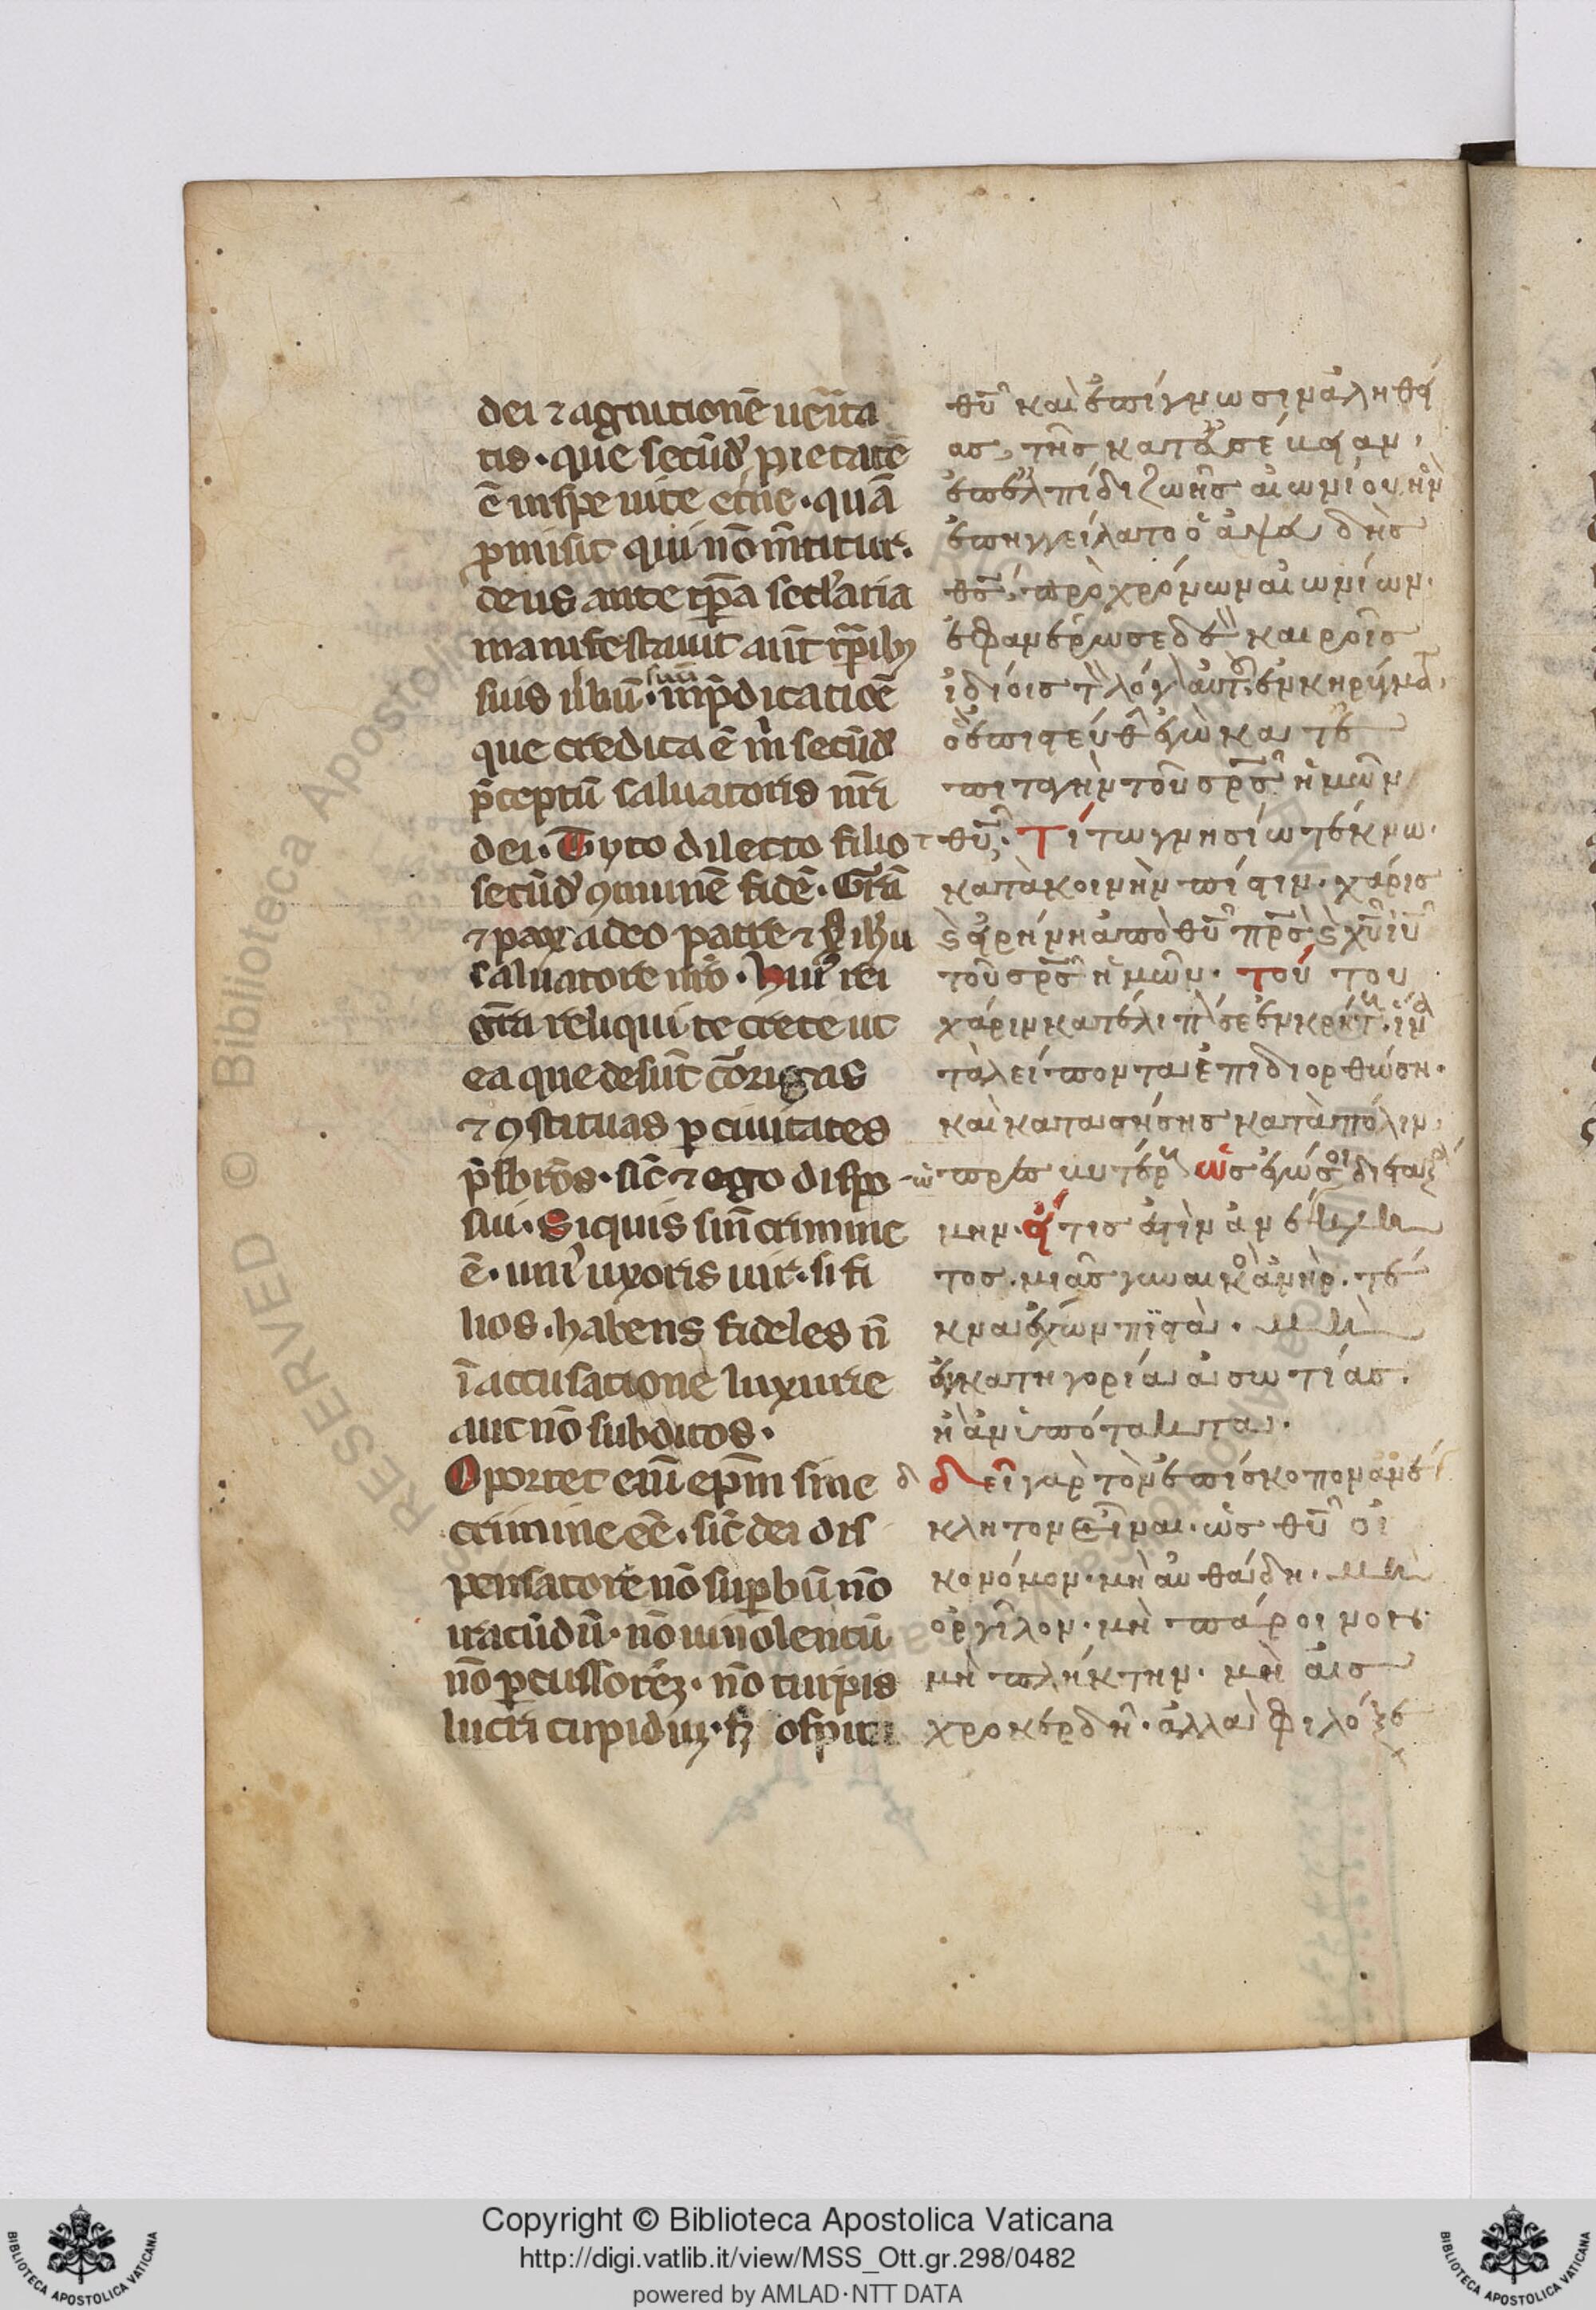 dei ⁊ agnitionē ueri̅ta
tis · que secūd' pietatē
ē in spe uite et̅ne · quā
ꝓmisit qui nō m̅titur ·
deus ante tp̅a sec̅laria
manifestauit aut̅ tp̅ribꝫ
suis u̅bū · suū in p̅dicatiōe
que credita ē m̅ secūd'
p̅ceptū saluatoris nr̅i
dei · Tyto dilecto filio
secūd' ꝯmunē fidē · Gr̅a
⁊ pax a deo patre ⁊ xp̅o ih̅u
saluatore nr̅o · Hui' rei
gr̅a reliqui te crete ut
ea que desūt cōrigas
⁊ ꝯstituas ꝑ ciuitates
p̅sb̅ros · sic̅ ⁊ ego dispo
sui · Siquis sin̅ crimine
ē · uni' uxoris uir · si fi
lios · habens fideles n̅
ī accusatione luxurie
aut nō subditos ·
Oportet eni̅ ep̅m sine
crimine ee̅ · sic̅ dei dis
pensatorē nō suꝑbū nō
iracūdū · nō uinolentū
nō ꝑcussorēꝫ · nō turpis
lucri cupidūꝫ · sꝫ ospita
θυ̅ καὶ ἐπίγνωσιν ἀληθεί
ας, τῆς κατ' εὐσέβειαν ·
ἐπ' ἐλπίδι ζωῆς αἰωνίου ἣν
ἐπηγγείλατο ὁ ἀψευδὴς
θς̅, πρὸ χρόνων αἰωνίων ·
ἐφανέρωσε δὲ καιροῖς
ἰδίοις τὸν λόγον αὐτοῦ, ἐν κηρύγματι
ὃ ἐπιστεύθην ἐγὼ κατ' ἐ
πιταγὴν τοῦ σρ̅ς ἡμῶν
θυ̅ · Τίτω γνησίω τέκνω ·
κατὰ κοινὴν πίστιν · χάρις
ϗ εἰρήνη ἀπὸ θυ̅ πρ̅ς ϗ χυ̅ ιυ̅
τοῦ σρ̅ς ἡμῶν · τού του
χάριν κατέλιπόν σε ἐν κρήτῃ · ἵνα
τὰ λείποντα ἐπιδιορθώσῃ ·
καὶ καταστήσῃς κατὰ πόλιν
πρεσβυτέρους ὡς ἐγώ σοι διεταξά
μην · εἴ τις ἐστὶν ἀνέγκλη
τος · μιᾶς γυναικὸς ἀνήρ · τέ
κνα ἔχων πιστὰ · μὴ
ἐν κατηγορία ἀσωτίας ·
ἢ ἀνυπότακτα ·
δ δεῖ γὰρ τὸν ἐπίσκοπον ἀνέ
κλητον εἶναι · ὡς θυ̅ οἰ
κονόμον · μὴ αὐθάδη · μὴ
ὀργίλον · μὴ πάροινον ·
μὴ πλήκτην · μὴ αἰσ
χροκερδῆ · ἀλλὰ φιλόξε
RESERVED © Biblioteca Apostolica Vaticana
BIBLIOTECA APOSTOLICA VATICANA
Copyright © Biblioteca Apostolica Vaticana
http://digi.vatlib.it/view/MSS_Ott.gr.298/0482
powered by AMLAD·NTT DATA
BIBLIOTECA APOSTOLICA VATICANA